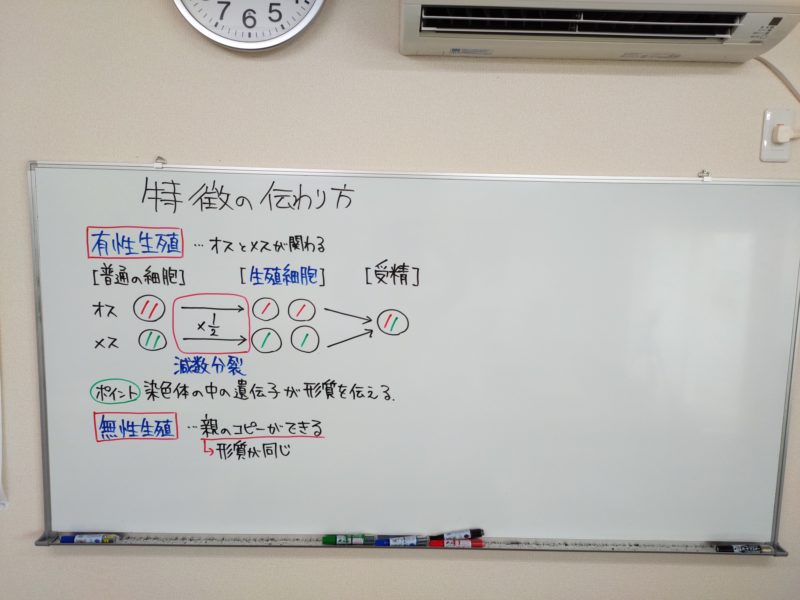 7 6 5
特徴の伝わり方
有性生殖 …オスとメスが関わる
[普通の細胞] [生殖細胞] [受精]
オス
×1/2
メス
減数分裂
ポイント 染色体の中の遺伝子が形質を伝える.
無性生殖 …親のコピーができる
形質が同じ